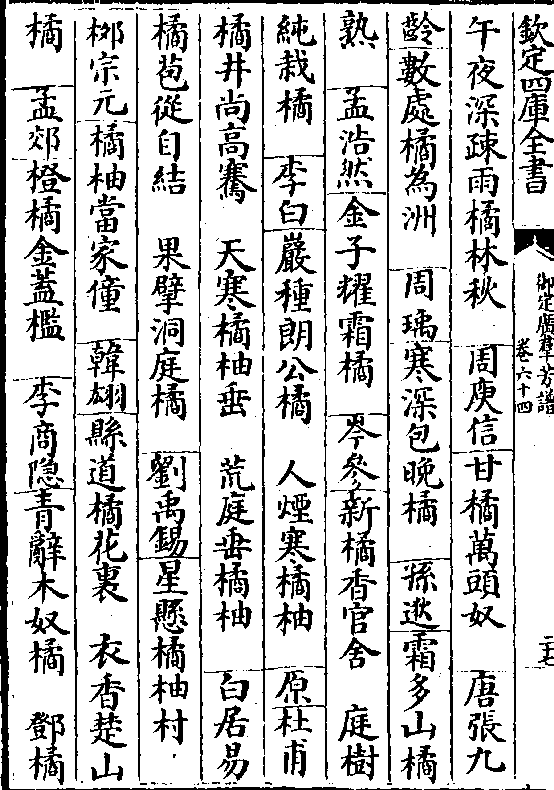 欽定四庫全書
御定廣羣芳譜
卷六十四
午夜深疎雨橘林秋　周庾信甘橘萬頭奴　唐張九
齡數處橘為洲　周瑀寒深包晚橘　孫逖霜多山橘
熟　孟浩然金子耀霜橘　岑參新橘香官舍　庭樹
純栽橘　李白巖種朗公橘　人煙寒橘柚　原杜甫
橘井尚高騫　天寒橘柚垂　荒庭垂橘柚　白居易
橘苞從自結　果擘洞庭橘　劉禹錫星懸橘柚村
桞宗元橘柚當家僮　韓翃縣道橘花裏　衣香楚山
橘　孟郊橙橘金蓋檻　李商隐青辭木奴橘　鄧橘